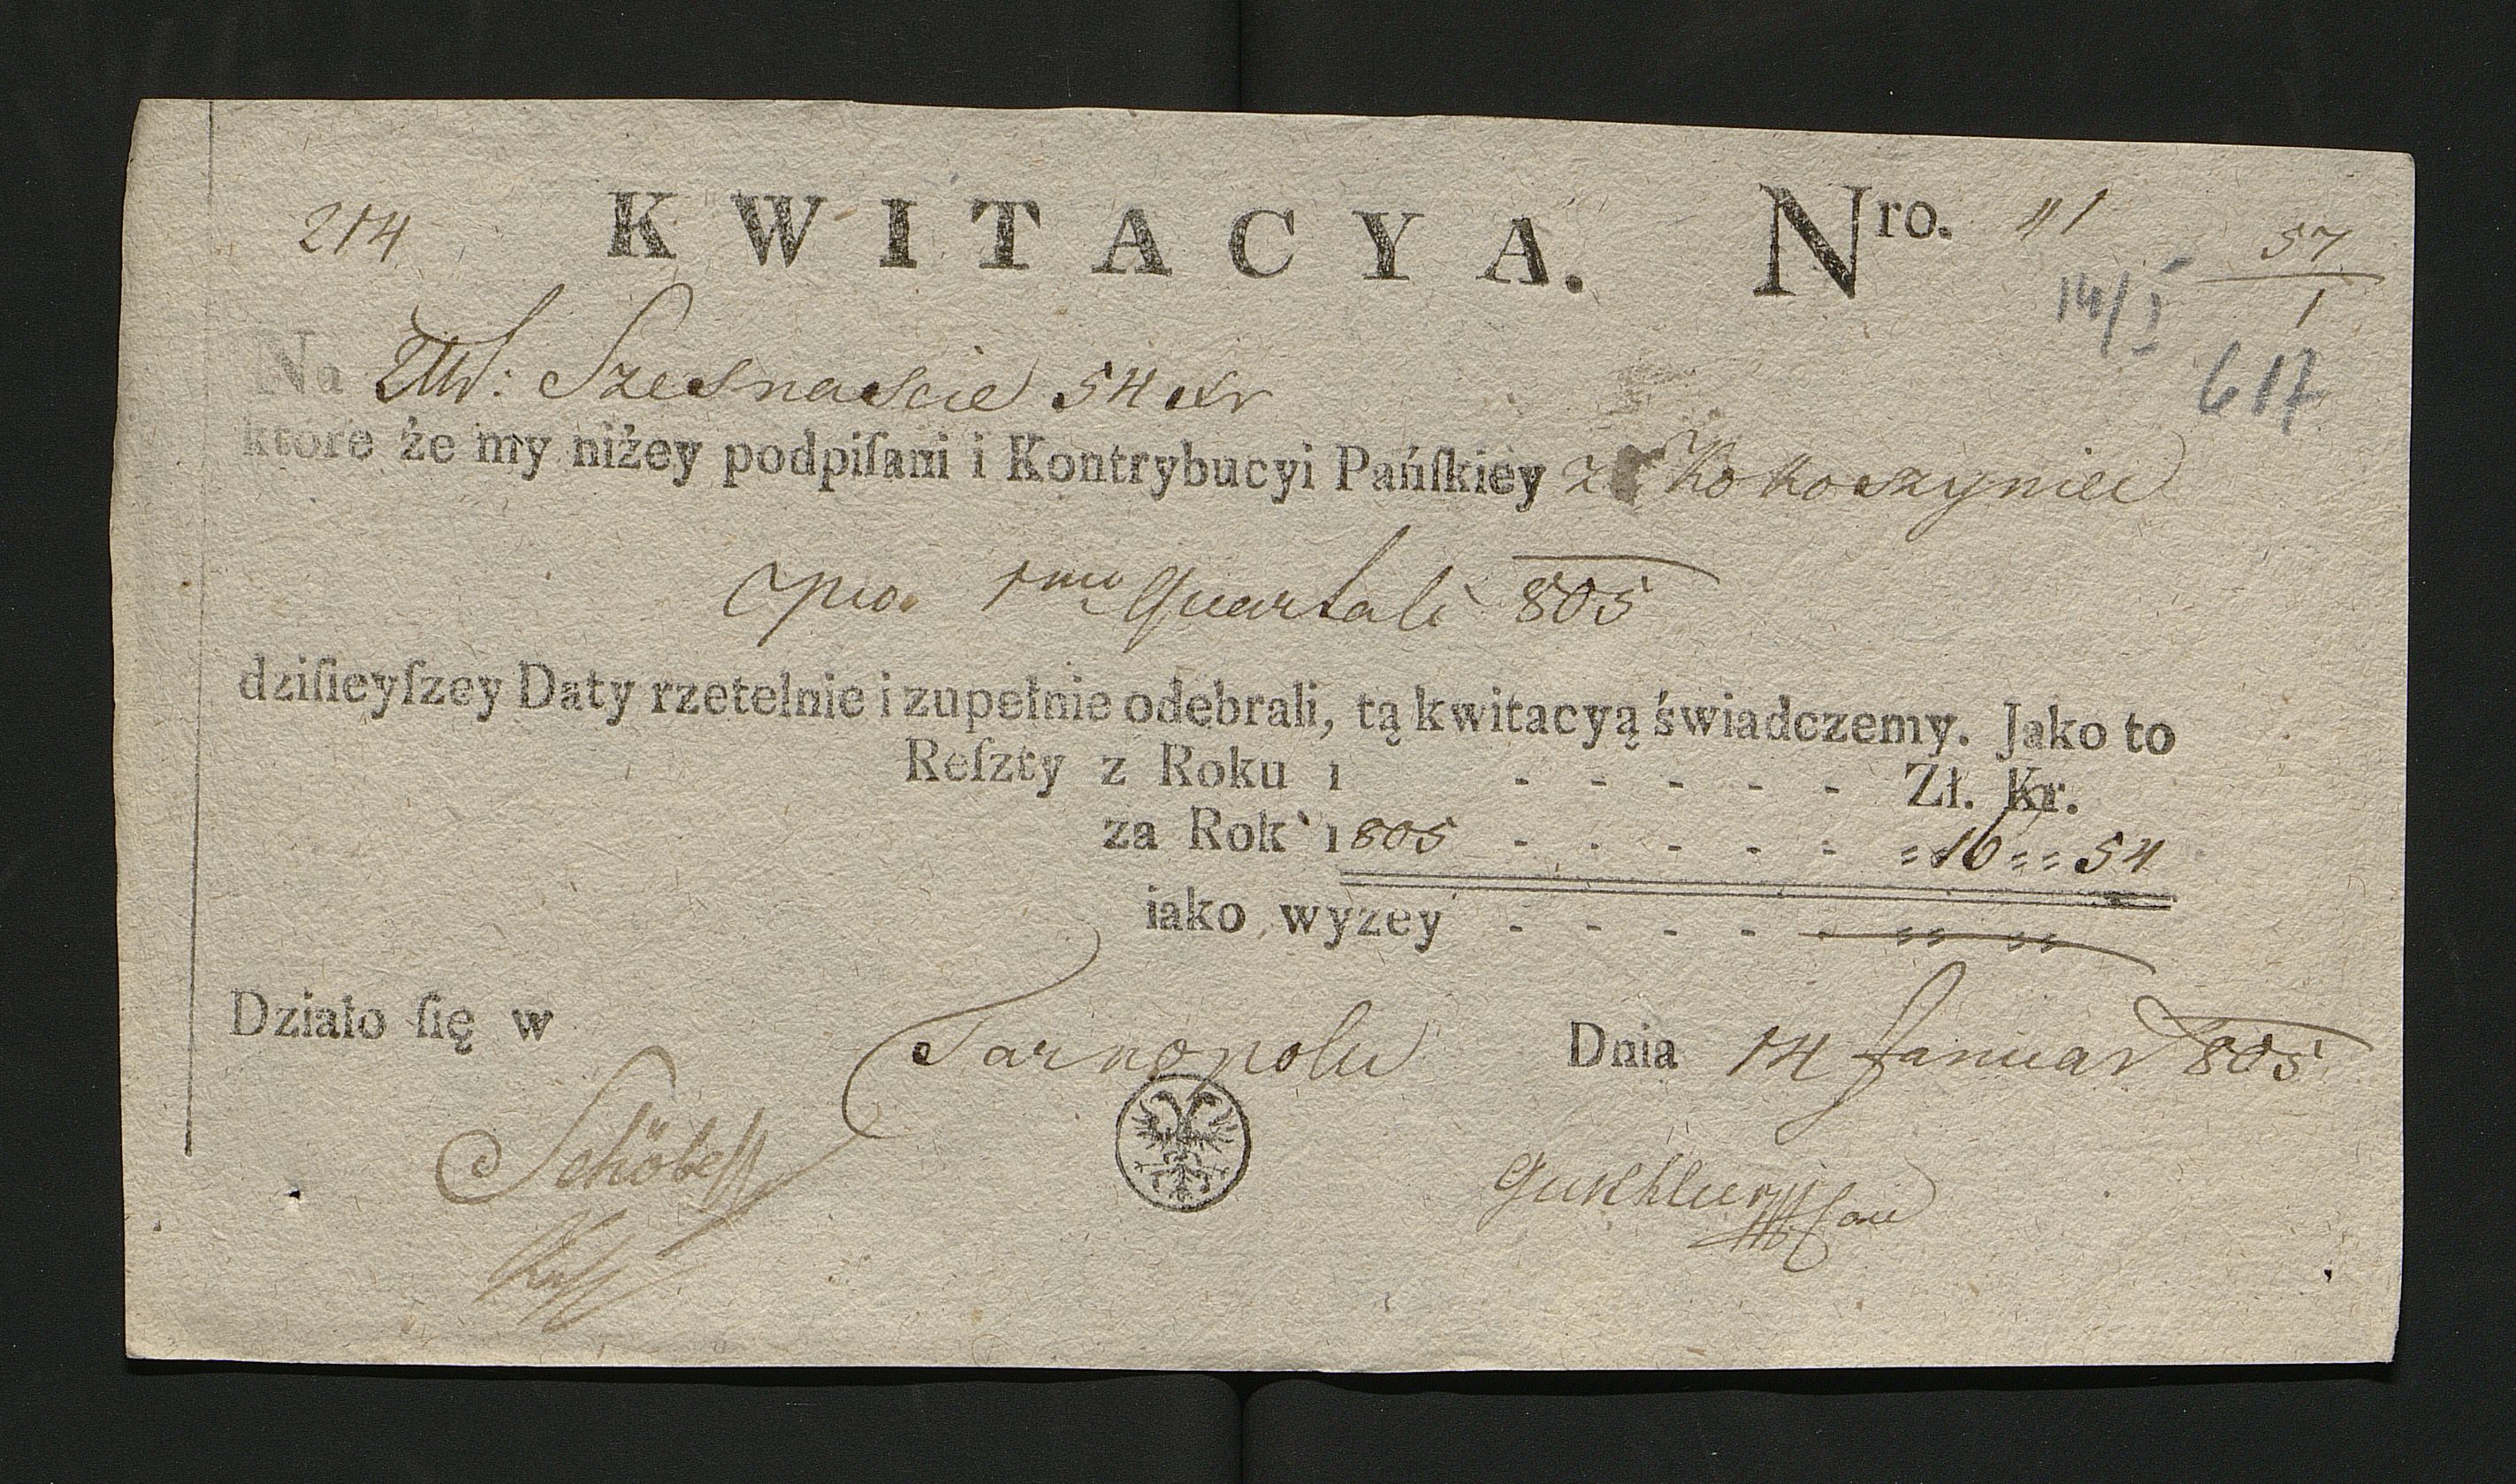 214 KWITACYA. Nro. 41
57
1
14/I
617
Na Złł: Szesnascie 54 xr
ktore że my niżey podpiſani i Kontrybucyi Pańſkiey z Kokoszyniec
pro 1mo Quartali 805
dziſieyſzey Daty rzetelnie i zupełnie odebrali, tą kwitacyą świadczemy. Jako to
Reſzty z Roku 1 - - - - - Zł. Kr.
za Rok 1805 - - - - - 16 54
iako wyzey - - - - -
Działo ſię w Tarnopolu Dnia 14 Januar 805
Schöbel